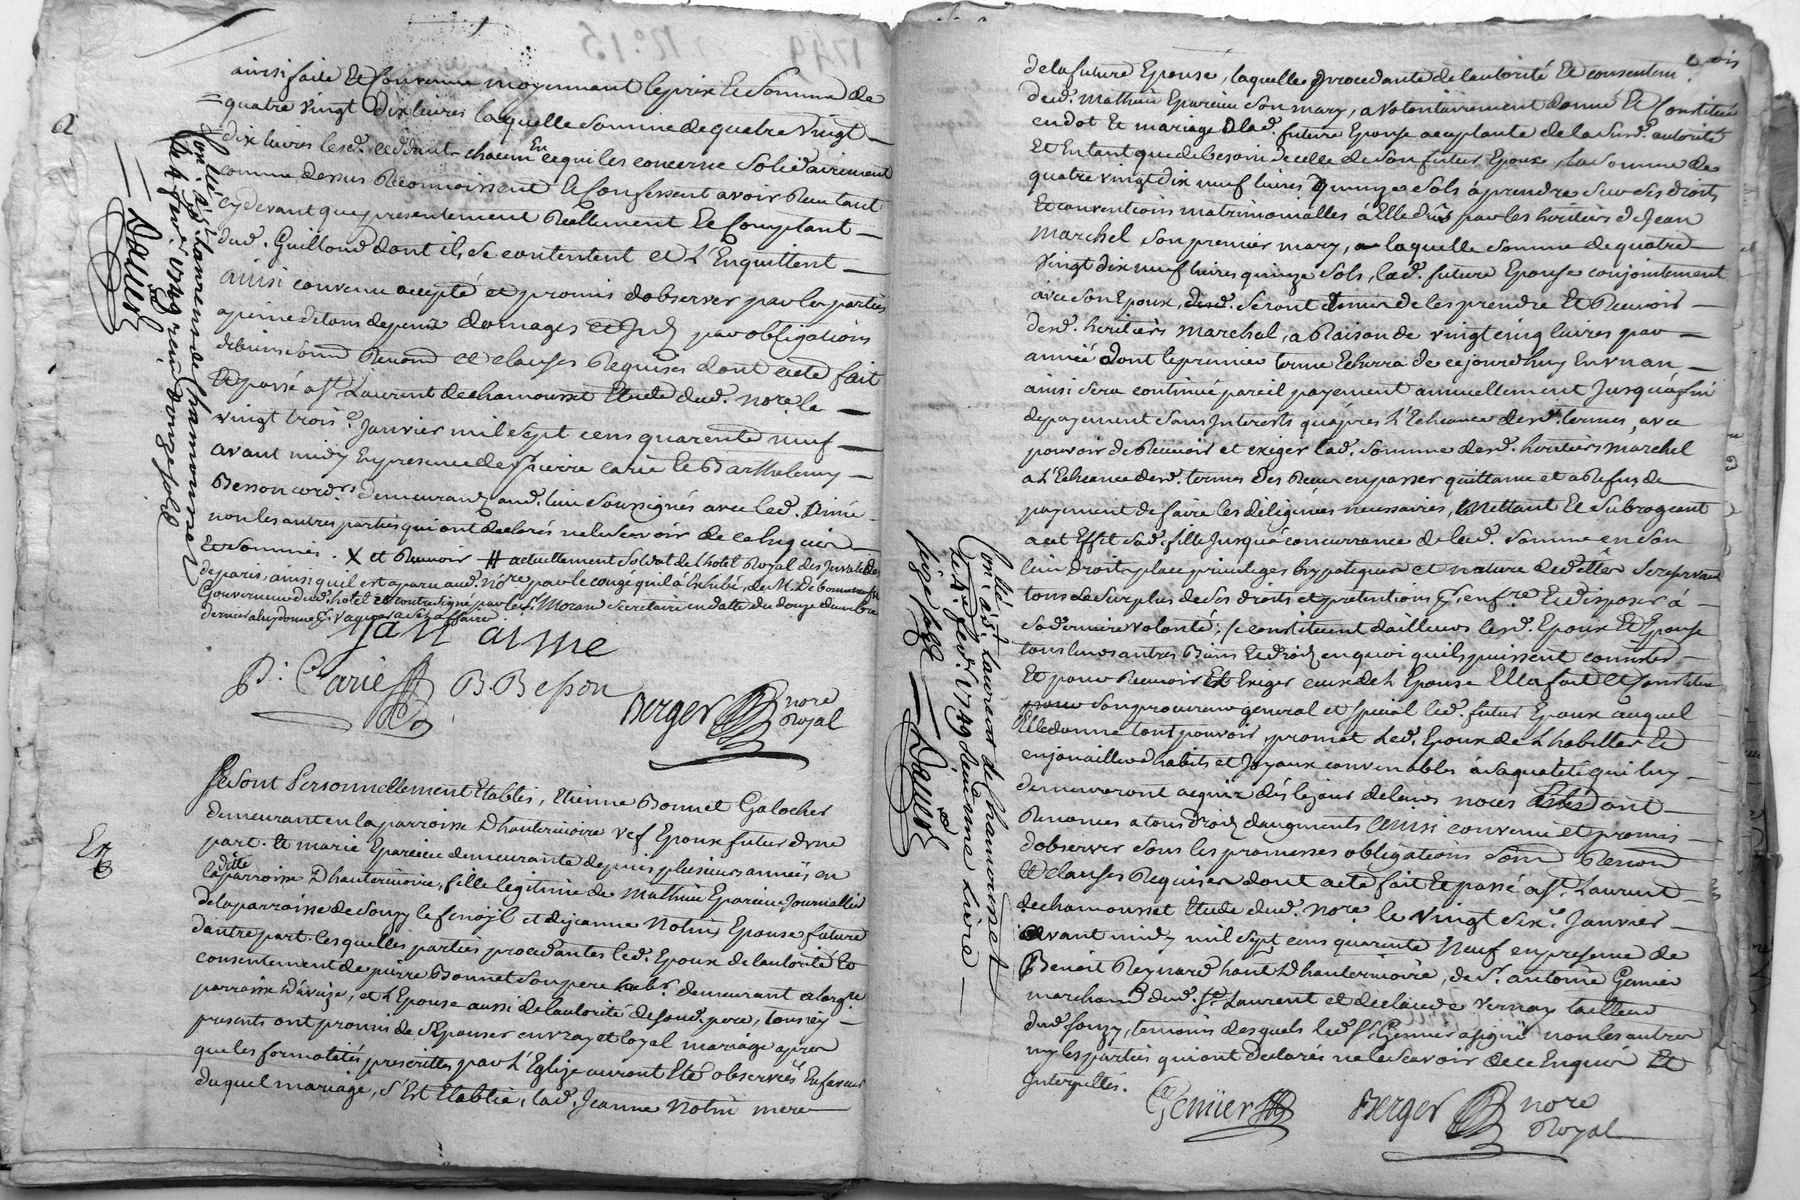 ainsi faite et convenue moyennant le prix et somme de
quatre vingt dix livres laquelle somme de quatre vingt
dix livres lesd. chacun en ce qui les concerne solidairement
comme dessus Reconnoissent et Confessent avoir Reçu tant
cydevant que presentement Reellement et Comptant
dud. Guilloud dont ils se contentent et L'Enquittent
ainsi convenu accepté et promis dobserver par les parties
a peine de tous depens domages et par obligations
de biens soum Renon et clauses Requises dont acte fait
et passé a St. Laurent de chamousset Etude dud. nore. le
vingt trois e. Janvier mil sept cens quarente neuf
avant midy En presence de Pierre carie et Barthelemy
Besson cord.rs demeurans aud. lieu soussignés avec led. Aimé
non les autres parties qui ont declarés ne le scavoir de ce Enquis
et sommés. X et Recevoir # actuellement soldat de L'hotel Royal des Invalides
de paris, ainsi quil est aparu aud. Nore par le congé quil a Exhibé, de M. de
Gouverneur dud. hotel et contresigné par le Sr. Moran secretaire en datte du douze
dernier a luy donné pr. vaquer a ses affaires
Jan aime
P. Carie B. Besson
Berger nore
Royal
Con.llé à St. Laurens de Chamousset
le 4 fevr. 1749 reçu douze sols
Dauer
Se sont Personnellement Etablis, Etienne Bonnet Galocher
demeurant en la parroisse d'hauterivoire vef Epoux futur d'une
part. Et marie Eparcieu demeurante depuis plusieurs années en
laditte parroisse D'hauterivoire, fille legitime de Mathieu Eparcieu Journallier
de la parroisse de Souzy le et de jeanne Notin Epouse future
dautre part. lesquelles parties procedantes led. Epoux de lautorité et
consentement de pierre Bonnet son pere demeurant a
parroisse D'aveize, et L'Epouse aussi de lautorité de sond. pere, tous icy
presents ont promis de sEpouser en vray et loyal mariage apres
que les formalités prescrittes par L'Eglize auront Eté observées En faveur
duquel mariage, s'Est Etablie, lad. Jeanne Notin mere
de la future Epouse, laquelle procedante de lautorité Et consentem.
dud. Mathieu Eparcieu son mary, a volontairement donné Et Constitué
en dot Et mariage à lad. future Epouse acceptante de la susd. autorité
et En tant que de besoin de celle de son futur Epoux, la somme de
quatre vingt dix neuf livres quinze sols à prendre sur ses droits
Et conventions matrimonialles à Elle dûs par les heritiers de Jean
Marchel son premier mary, laquelle somme de quatre
vingt dix neuf livres quinze sols, lad. future Epouse conjointement
avec son Epoux, seront de les prendre Et Recevoir
desd. heritiers Marchel, a Raison de vingt cinq livres par
année dont le premier terme Echerra de ce jourdhuy En un an,
ainsi sera continué pareil payement annuellement Jusquà fin
de payement sans Interests quapres L'Echeance desd. termes, avec
pouvoir de Recevoir et exiger lad. somme desd. heritiers marchel
a L'Echeance desd. termes du Reçu en passer quittance et a Refus de
payement de faire les diligences necessaires, Mettant Et Subrogeant
a cet Effet sad. fille Jusquà concurrance de lad. somme en son
lieu droit place privileges hypoteques et nature de dette se reservant
tous le surplus de ses droits et pretentions pr. en fre. Et disposer à
sa derniere volonté; se constituent dailleurs lesd. Epoux Et Epouse
tous leurs autres Biens Et droits en quoi quils puissent consister
Et pour Recevoir Et Exiger ceux de L'Epouse Elle fait et constitue
son procureur general et special led. futur Epoux auquel
Elle donne tout pouvoir, promet led. Epoux de L'habiller Et
enjouailler dhabits et Joyaux convenables à sa qualité qui luy
demeureront acquis dès le jour de leurs noces
Renoncés a tous droits daugments Ainsi convenu et promis
dobserver sous les promesses obligations Soum Renon
Et clauses Requises dont acte fait Et passé a St. Laurent
de chamousset Etude dud. Nore le vingt six e. Janvier
avant midy mil sept cens quarente Neuf en presence de
Benoit Reynard hant D'hauterivoire, de Sr. antoine Gemier
marchand dud. St. Laurent et de claude vernay tailleur
dud. souzy, temoins desquels led. Sr. Gemier a signé non les autres
ny les parties qui ont declarés ne le scavoir de ce Enquis Et
Interpellés.
Gemier Berger nore
Royal
Con.llé à St. Laurens de Chamousset
le 4 fevr. 1749 reçu une livre
seize sols Dauer